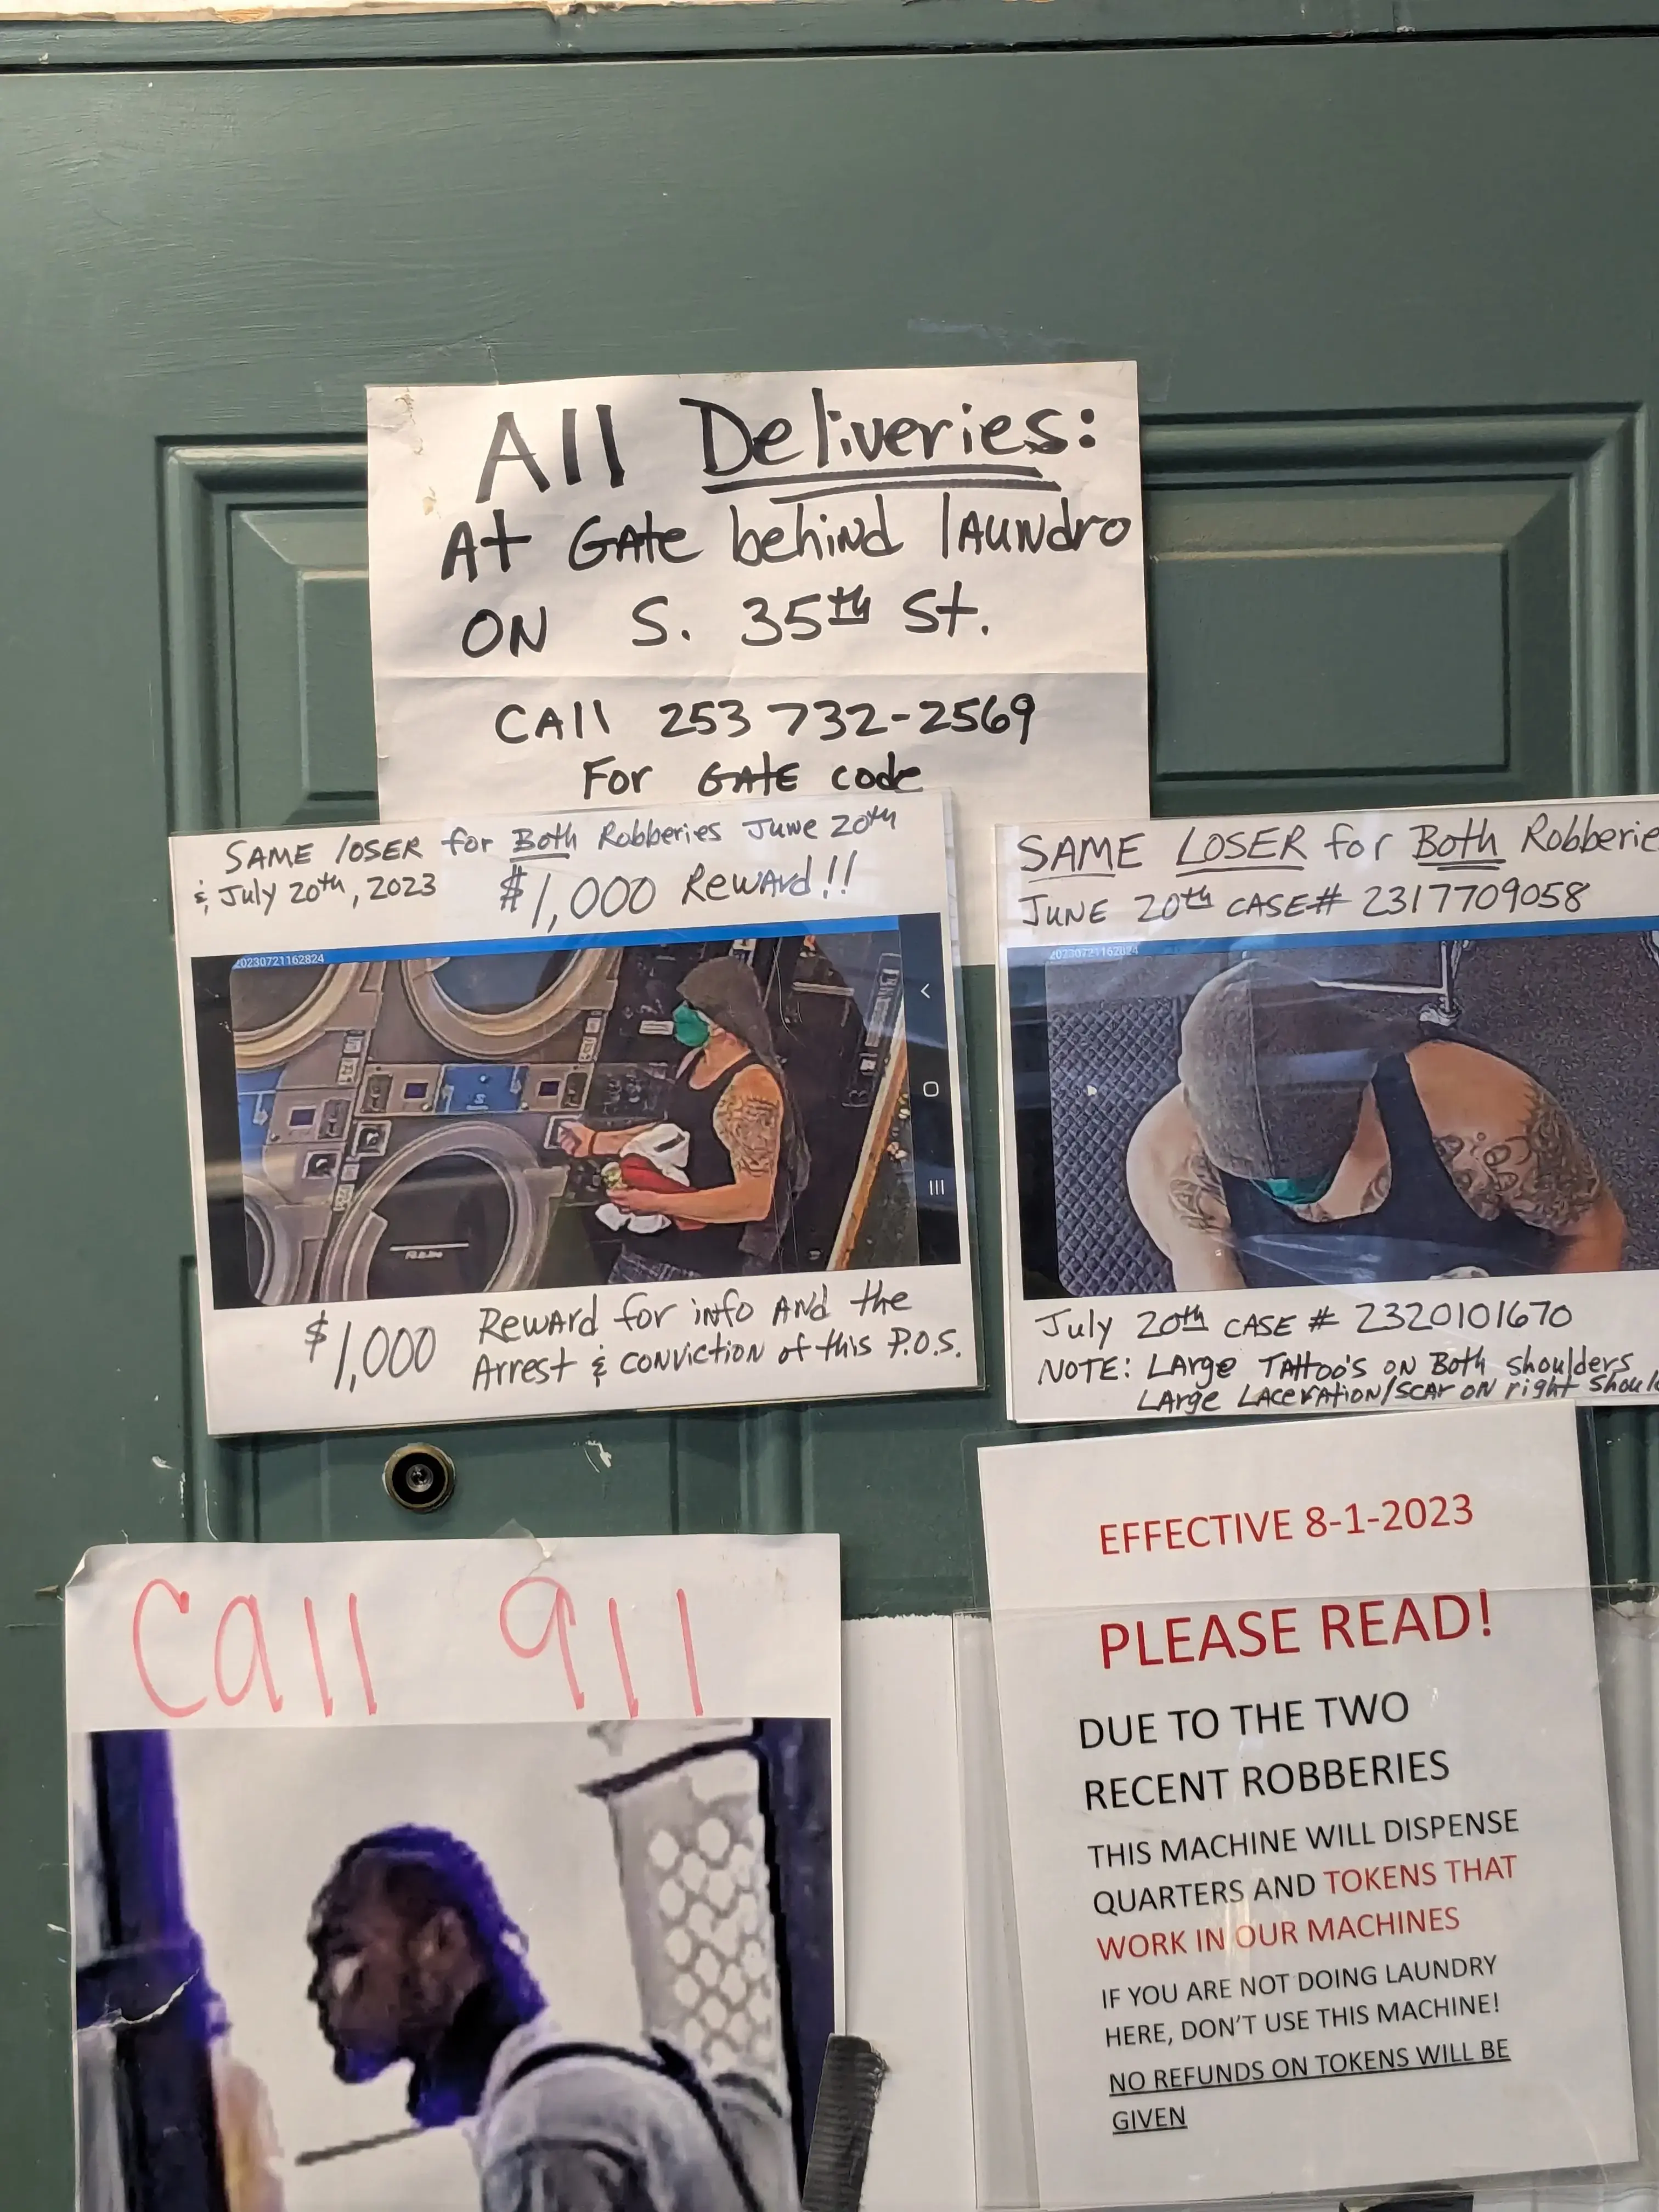 All Deliveries:
At GAte behind lAUNdro
ON S. 35th St.
CAll 253 732-2569
For GAtE code
SAME lOSER for Both Robberies June 20th
& July 20th, 2023
$1,000 Reward!!
20230721162824
$1,000 Reward for info AND the
Arrest & CONVICTION of this P.O.S.
SAME LOSER for Both Robberie
JUNE 20th CASE# 2317709058
20230721162824
July 20th CASE # 2320101670
NOTE: LArge TAttoo's ON Both shoulders
LArge LACerAtion/SCAr ON right Should
Call 911
EFFECTIVE 8-1-2023
PLEASE READ!
DUE TO THE TWO
RECENT ROBBERIES
THIS MACHINE WILL DISPENSE
QUARTERS AND TOKENS THAT
WORK IN OUR MACHINES
IF YOU ARE NOT DOING LAUNDRY
HERE, DON'T USE THIS MACHINE!
NO REFUNDS ON TOKENS WILL BE
GIVEN